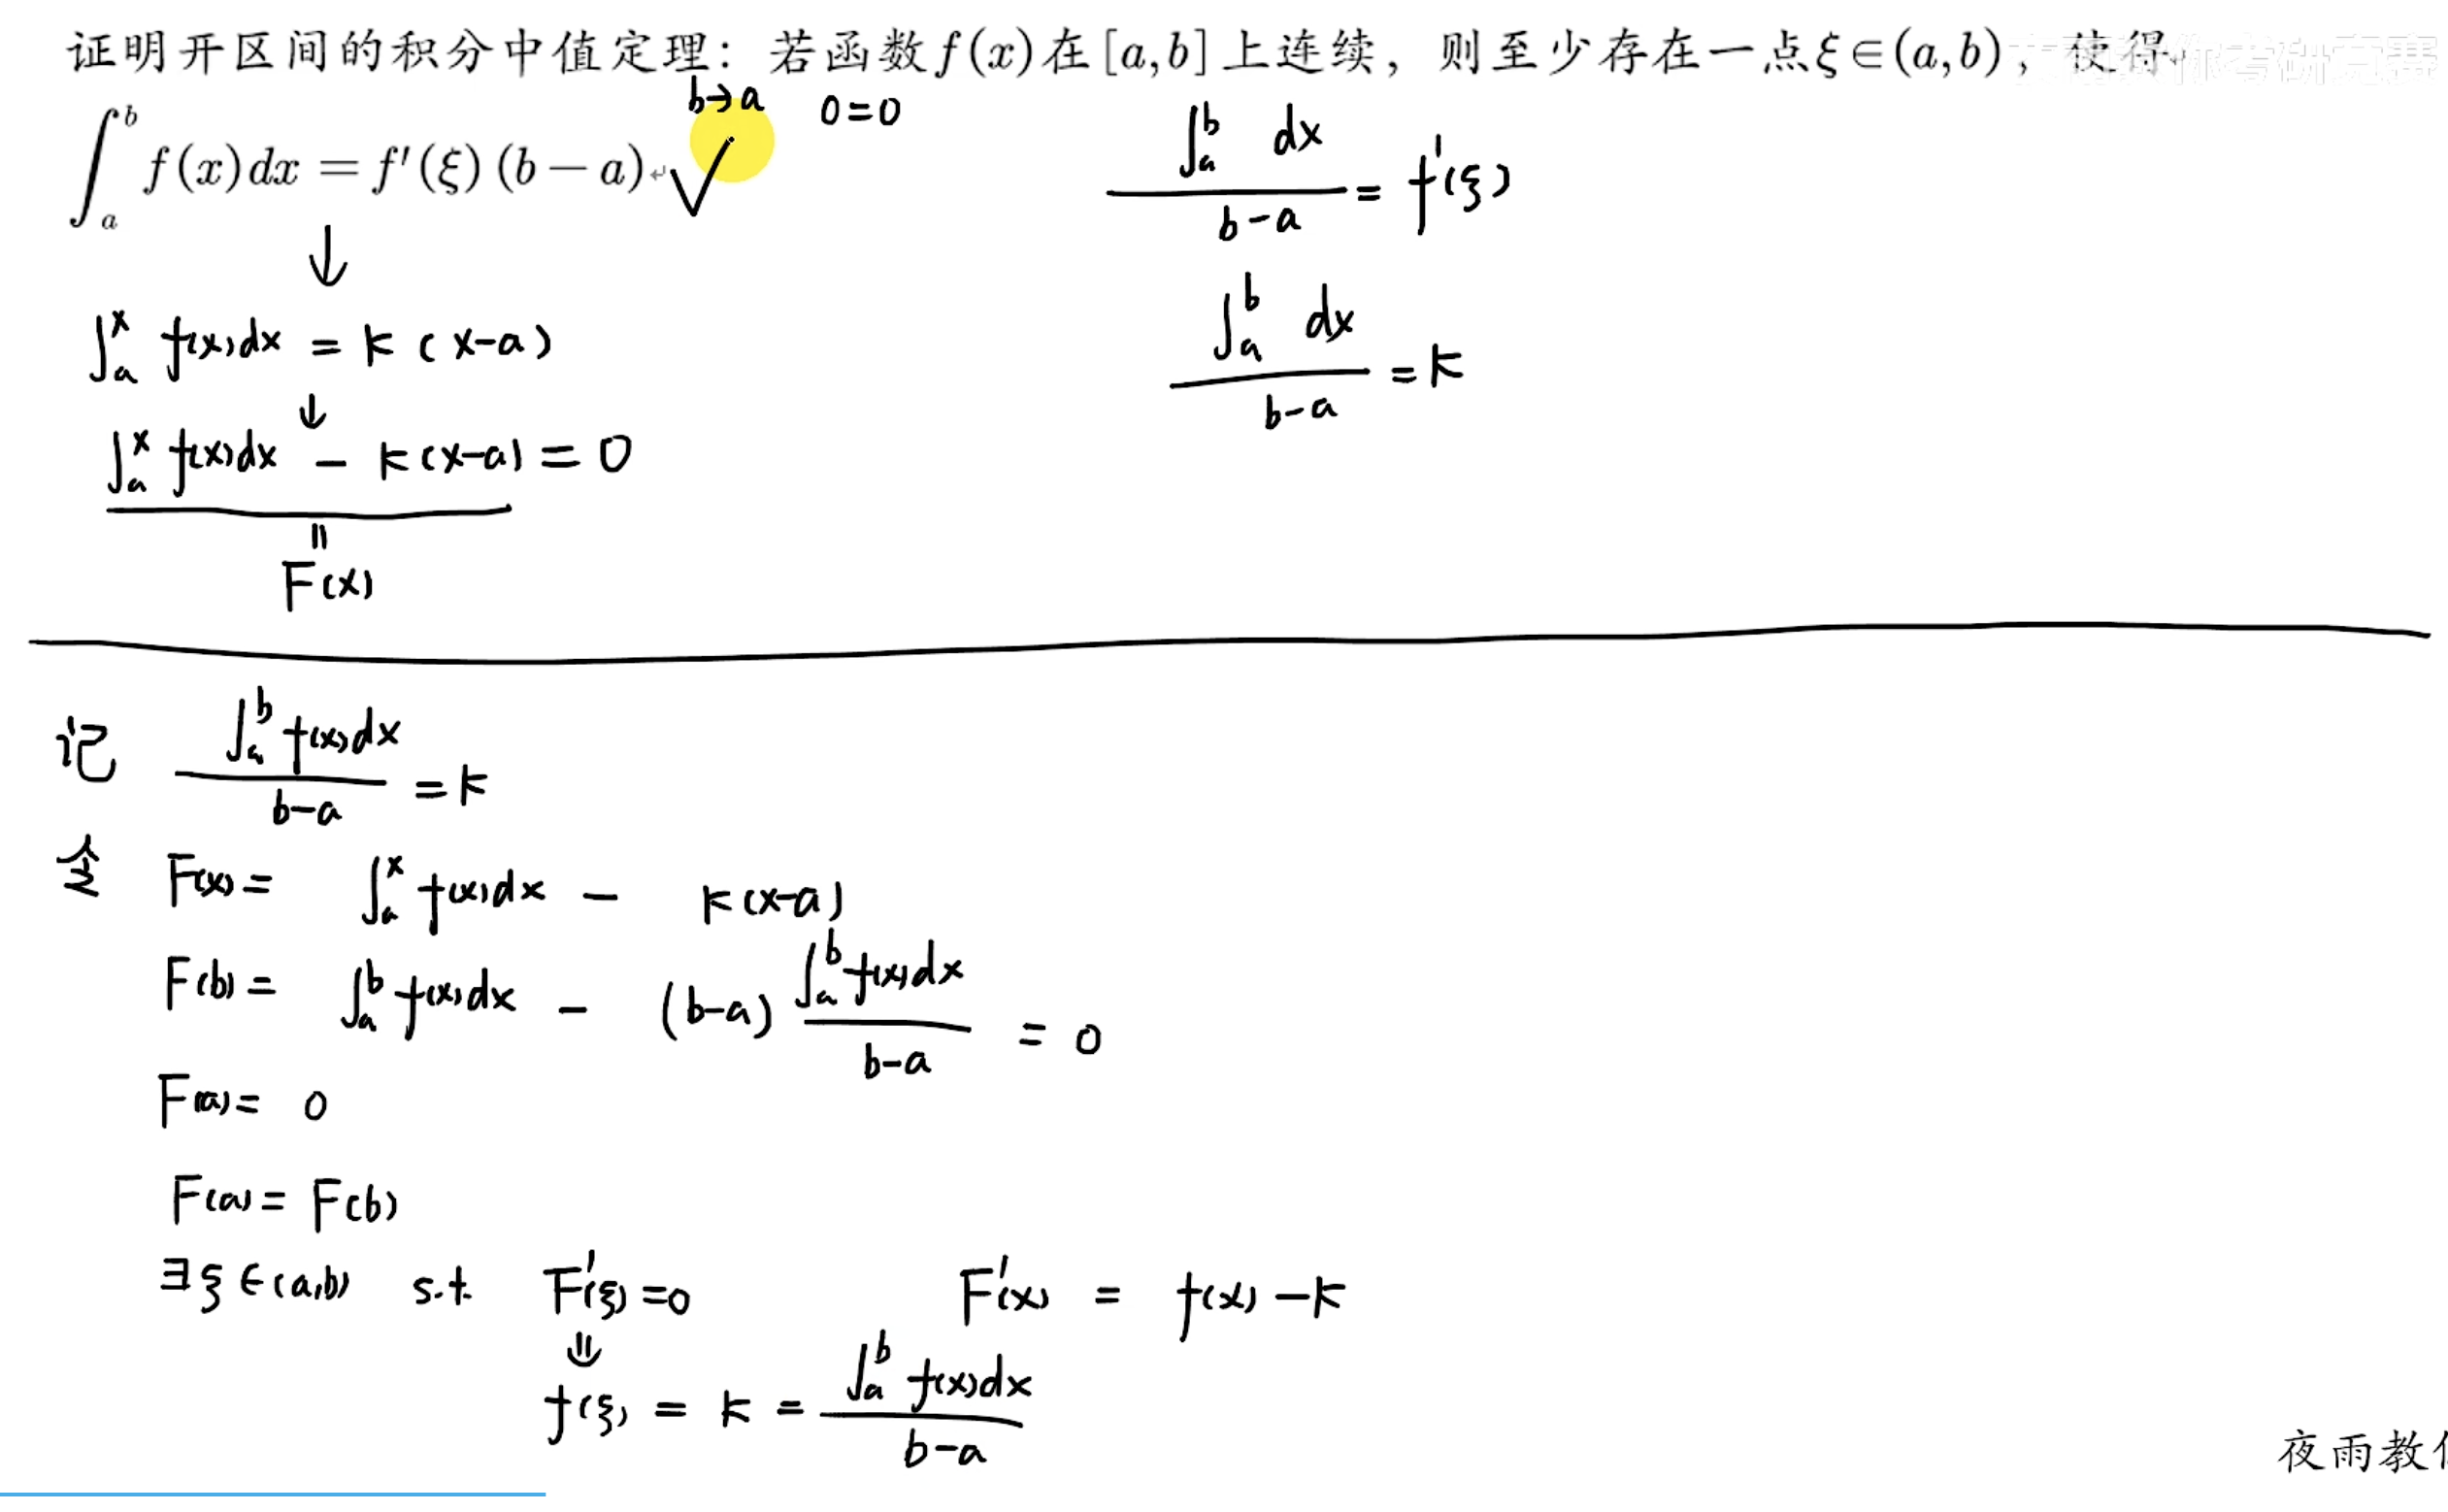 证明开区间的积分中值定理：若函数f(x)在[a,b]上连续，则至少存在一点ξ∈(a,b)，使得
b→a 0=0
∫_a^b f(x)dx = f′(ξ)(b−a) √
↓
∫_a^x f(x)dx = k(x−a)
↓
∫_a^x f(x)dx − k(x−a) = 0
=
F(x)
∫_a^b dx / b−a = f′(ξ)
∫_a^b dx / b−a = k
记 ∫_a^b f(x)dx / b−a = k
令 F(x) = ∫_a^x f(x)dx − k(x−a)
F(b) = ∫_a^b f(x)dx − (b−a) ∫_a^b f(x)dx / b−a = 0
F(a) = 0
F(a) = F(b)
∃ξ∈(a,b) s.t. F′(ξ)=0 F′(x) = f(x) − k
⇓
f(ξ) = k = ∫_a^b f(x)dx / b−a
夜雨教